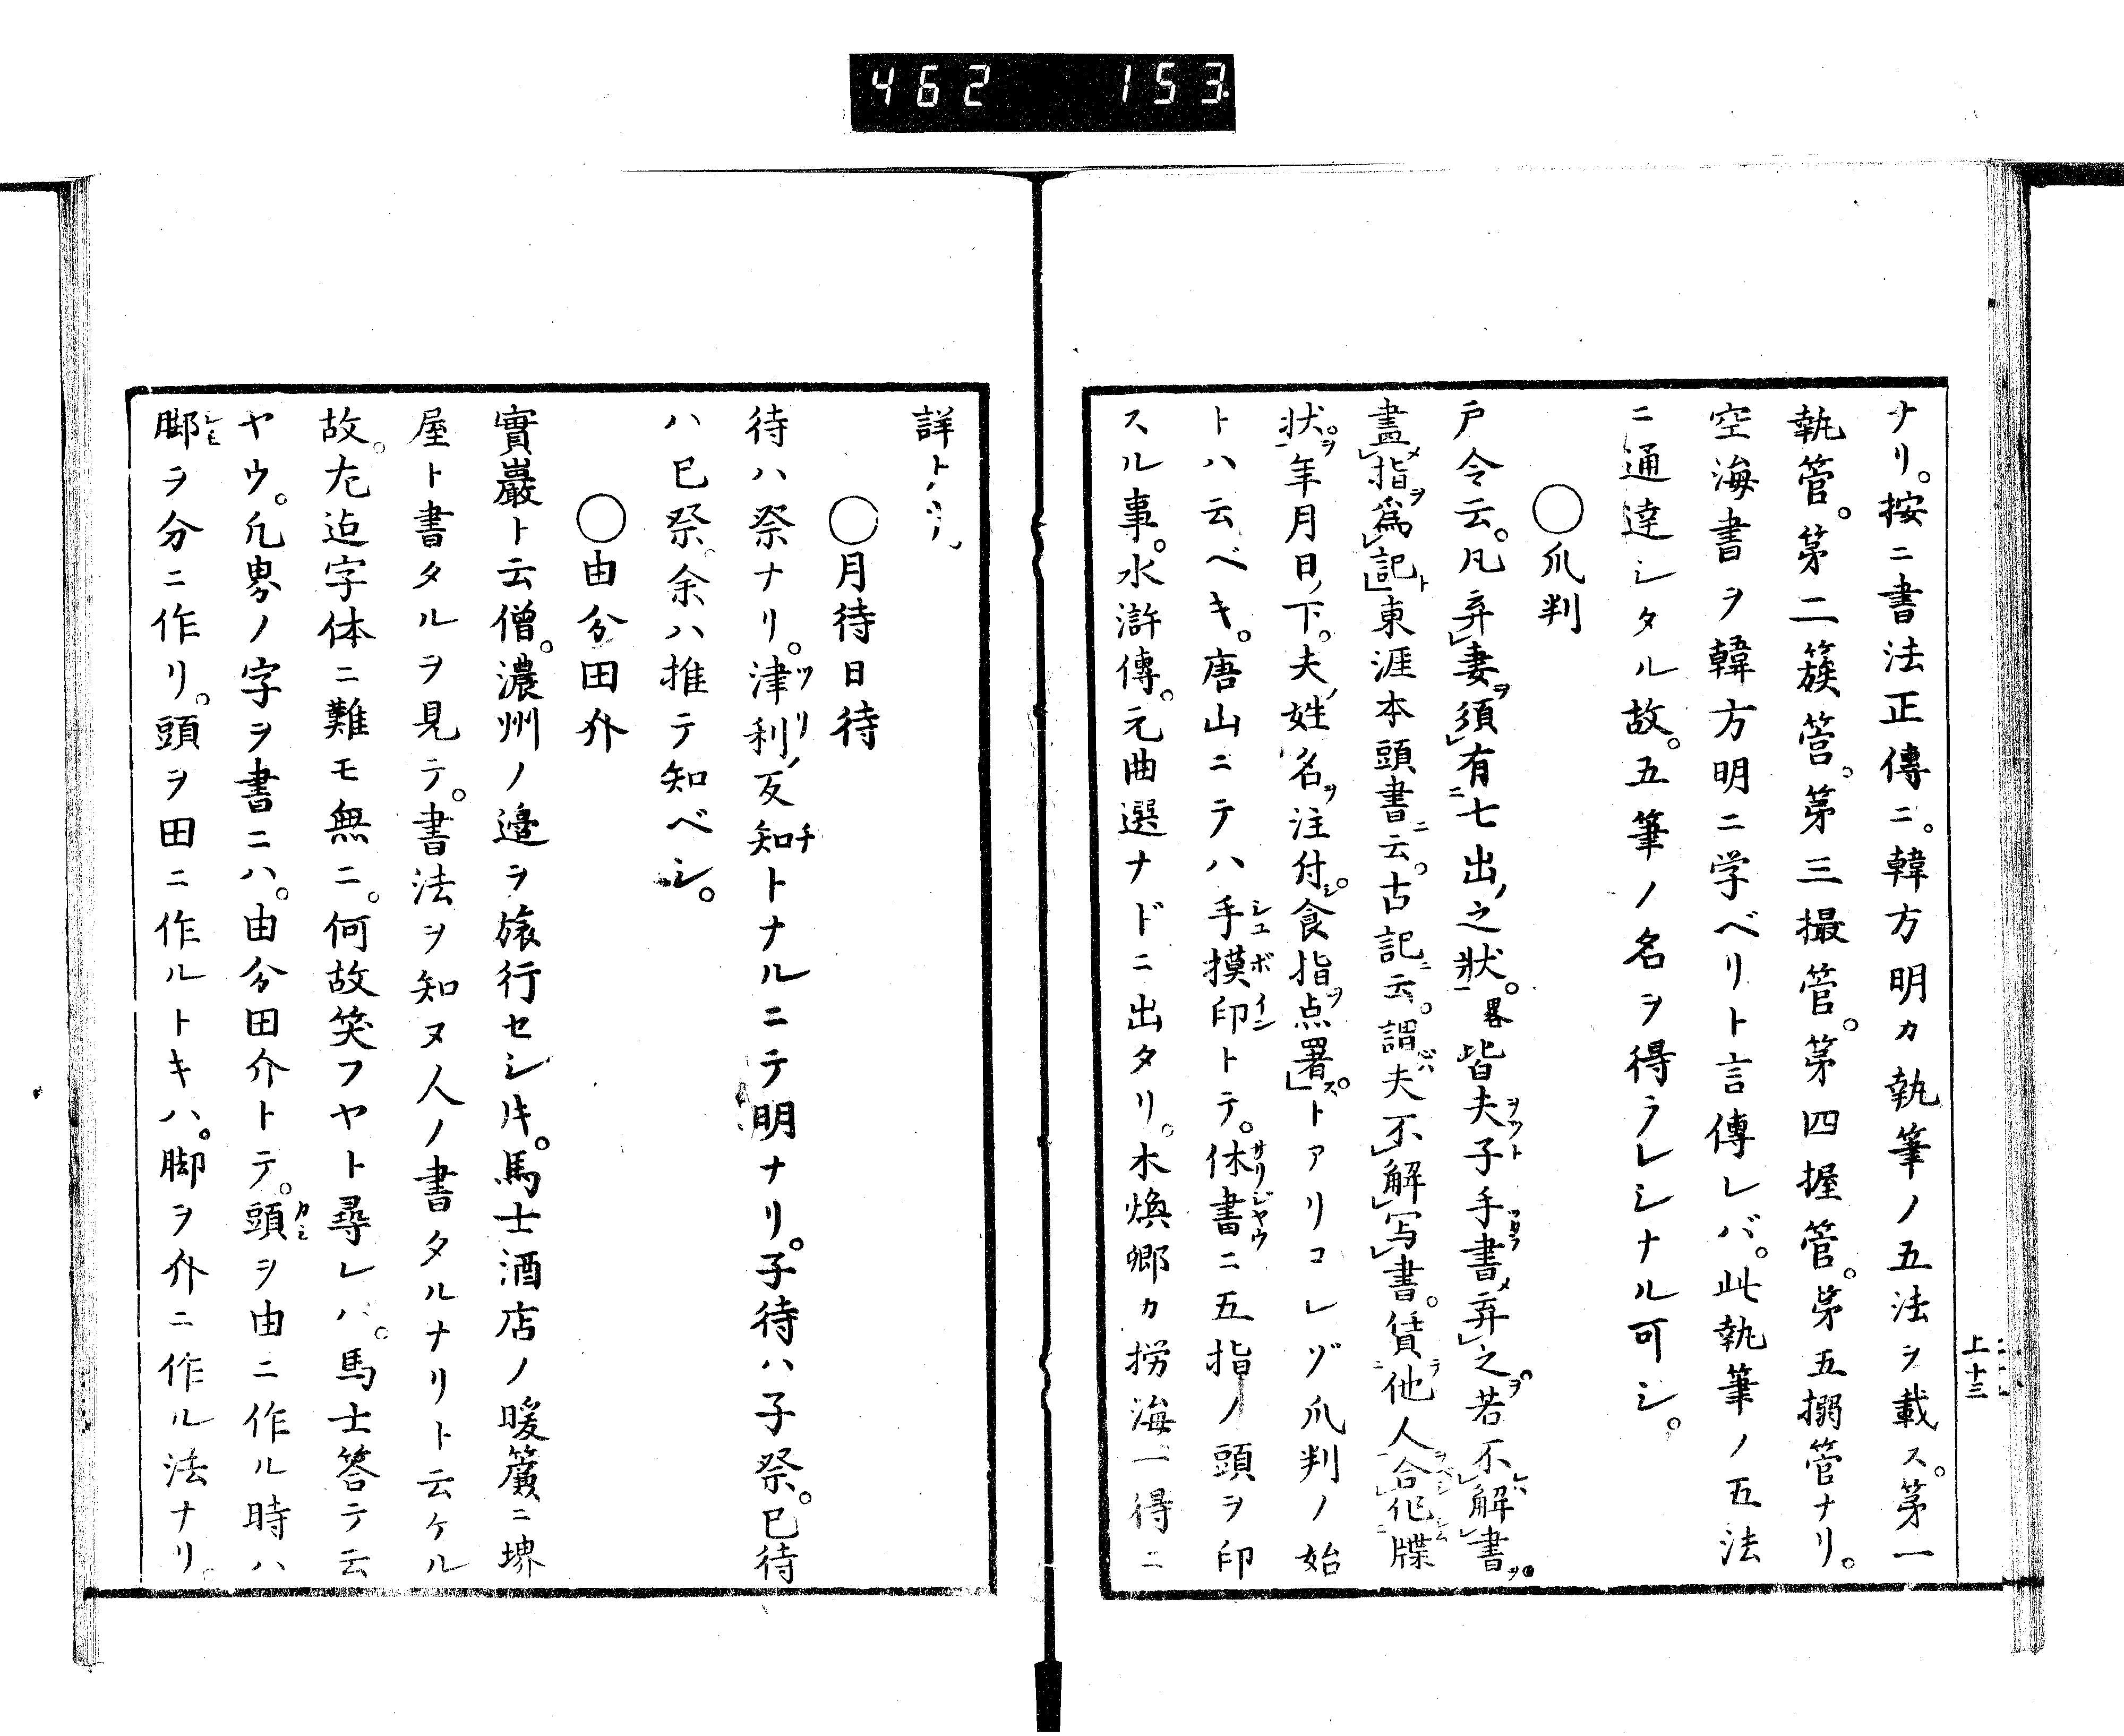 462 153
上十三
ナリ。按ニ書法正傳ニ。韓方明カ執筆ノ五法ヲ載ス。第一
執管。第二簇管。第三撮管。第四握管。第五搦管ナリ。
空海書ヲ韓方明ニ学ベリト言傳レバ。此執筆ノ五法
ニ通達シタル故。五筆ノ名ヲ得ラレシナル可シ。
○爪判
戸令云。凡弃妻須有七出之状。畧皆夫子手書弃之。若不解書
畫指為記東涯本頭書云。古記云。謂夫不解写書。賃他人合作牒
状。年月日下。夫姓名注付。食指点署」トアリコレゾ爪判ノ始
トハ云ベキ。唐山ニテハ手摸印トテ。休書ニ五指ノ頭ヲ印
スル事。水滸傳。元曲選ナドニ出タリ。木煥卿カ撈海一得ニ
詳ナリ
○月待日待
待ハ祭ナリ。津利反知トナルニテ明ナリ。子待ハ子祭。巳待
ハ巳祭。余ハ推テ知ベシ。
○由分田介
實巖ト云僧。濃州ノ邉ヲ旅行セシ𪜈。馬士酒店ノ暖簾ニ堺
屋ト書タルヲ見テ。書法ヲ知ヌ人ノ書タルナリト云ケル
故。左迠字体ニ難モ無ニ。何故笑フヤト尋レバ。馬士答テ云
ヤウ。凡界ノ字ヲ書ニハ。由分田介トテ。頭ヲ由ニ作ル時ハ
脚ヲ分ニ作リ。頭ヲ田ニ作ルトキハ。脚ヲ介ニ作ル法ナリ。